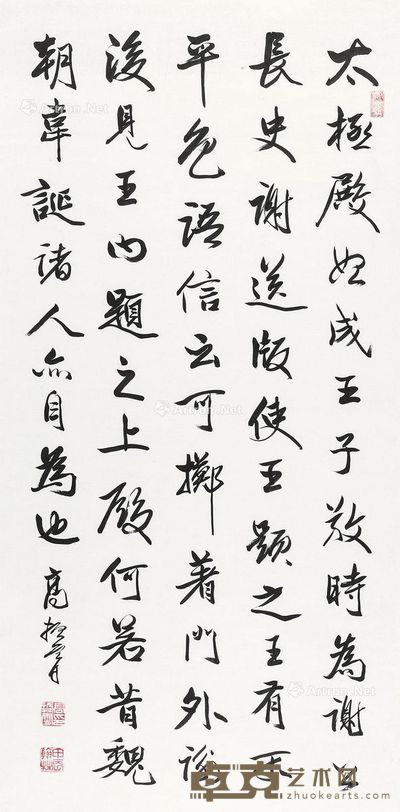 太極殿始成王子敬時為謝公
長史謝送版使王題之王有不
平色語信云可擲著門外謝
後見王曰題之上殿何若昔魏
朝韋誕諸人亦自為也
高振霄
Artron.Net
卓克艺术网
zhuokearts.com